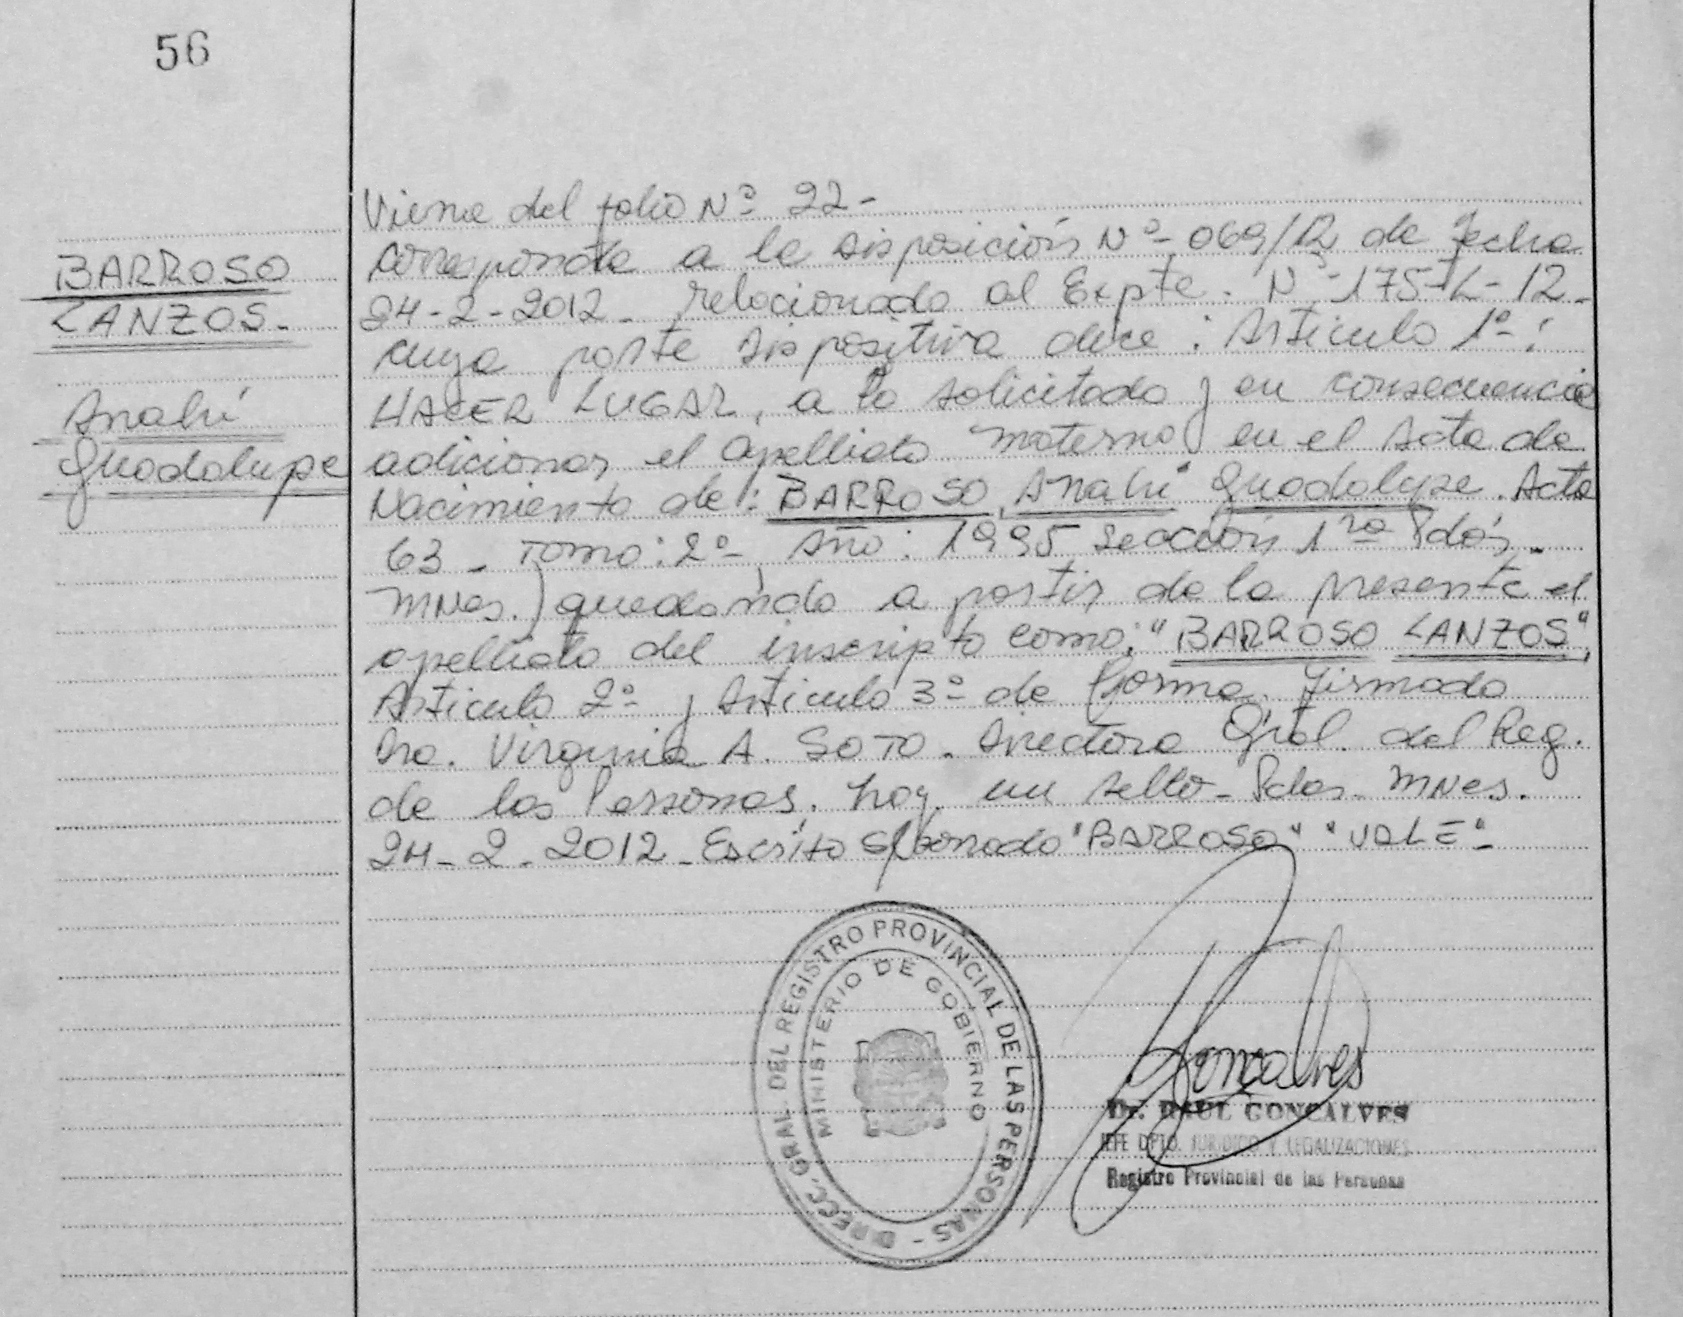 56
BARROSO
LANZOS.-
Anahí
Guadalupe
Viene del folio Nº 22-
corresponde a la disposición Nº 069/12 de fecha
24-2-2012- relacionado al Expte. Nº 175-L-12-
cuya parte dispositiva dice: Articulo 1º:
HACER LUGAR, a lo solicitado y en consecuencia
adicionar el apellido materno en el Acta de
Nacimiento de: BARROSO, Anahí Guadalupe. Acta
63 - Tomo: 2º- Año: 1995 Sección 1ra Pdas.
MNes.) quedando a partir de la presente el
apellido del inscripto como: "BARROSO LANZOS"
Articulo 2º y Articulo 3º de forma. Firmado
Dra. Virginia A. SOTO. Directora Gral. del Reg.
de las Personas. hay un sello- Pdas- MNes.
24-2-2012- Escrito S/borrado "BARROSO" "VALE"-
DIRECC. GRAL. DEL REGISTRO PROVINCIAL DE LAS PERSONAS -
MINISTERIO DE GOBIERNO
Goncalves
Dr. RAUL GONCALVES
JEFE DPTO. JURIDICO Y LEGALIZACIONES
Registro Provincial de las Personas